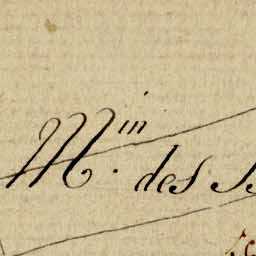 M.in des